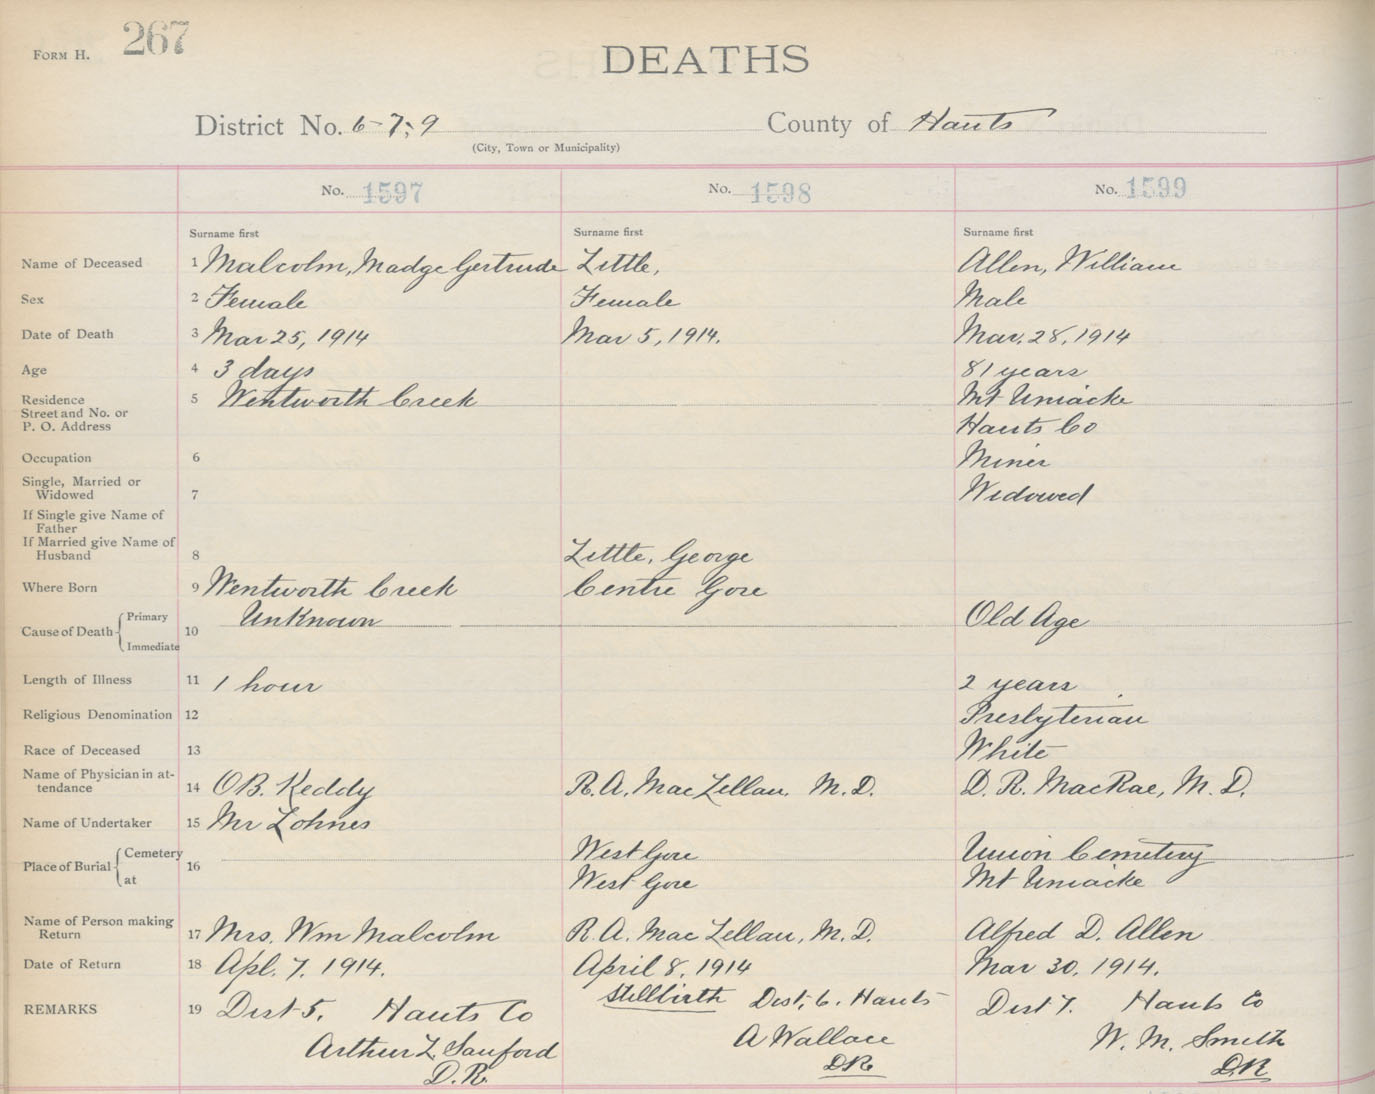 Form H. 267
DEATHS
District No. 6-7; 9
County of Hants
(City, Town or Municipality)
No. 1597
No. 1598
No. 1599
Surname first
Surname first
Surname first
Name of Deceased 1 Malcolm, Madge Gertrude Little, Allen, William
Sex 2 Female Female Male
Date of Death 3 Mar 25, 1914 Mar 5, 1914. Mar. 28, 1914
Age 4 3 days 81 years
Residence 5 Wentworth Creek Mt Uniacke
Street and No. or
P. O. Address Hants Co
Occupation 6 Miner
Single, Married or
Widowed 7 Widowed
If Single give Name of
Father
If Married give Name of
Husband 8 Little, George
Where Born 9 Wentworth Creek Centre Gore
Cause of Death Primary 10 Unknown Old Age
Immediate
Length of Illness 11 1 hour 2 years
Religious Denomination 12 Presbyterian
Race of Deceased 13 White
Name of Physician in at-
tendance 14 O B. Keddy R. A. MacLellan. M.D. D. R. MacRae, M. D.
Name of Undertaker 15 Mr Lohnes
Place of Burial Cemetery 16 West Gore Union Cemetery
at West Gore Mt Uniacke
Name of Person making
Return 17 Mrs. Wm Malcolm R. A. MacLellan, M.D. Alfred D. Allen
Date of Return 18 Apl. 7, 1914. April 8, 1914 Mar 30, 1914.
REMARKS 19 Dist 5, Hants Co Stillbirth Dist, 6. Hants Dist 7. Hants Co
Arthur L. Sanford A Wallace W. M. Smith
D.R. DR. D.R